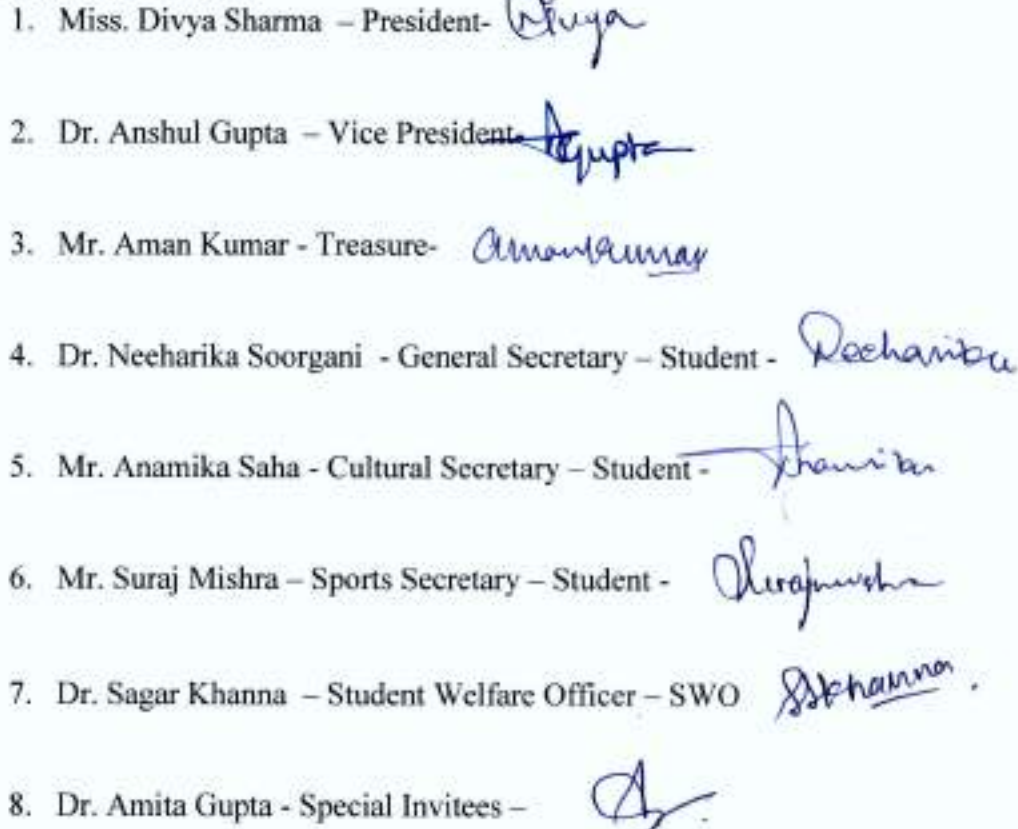 1. Miss. Divya Sharma – President- Divya
2. Dr. Anshul Gupta – Vice President- AGupta
3. Mr. Aman Kumar - Treasure- Amankumar
4. Dr. Neeharika Soorgani - General Secretary – Student - Neeharika
5. Mr. Anamika Saha - Cultural Secretary – Student -
6. Mr. Suraj Mishra – Sports Secretary – Student -
7. Dr. Sagar Khanna – Student Welfare Officer – SWO
8. Dr. Amita Gupta - Special Invitees –